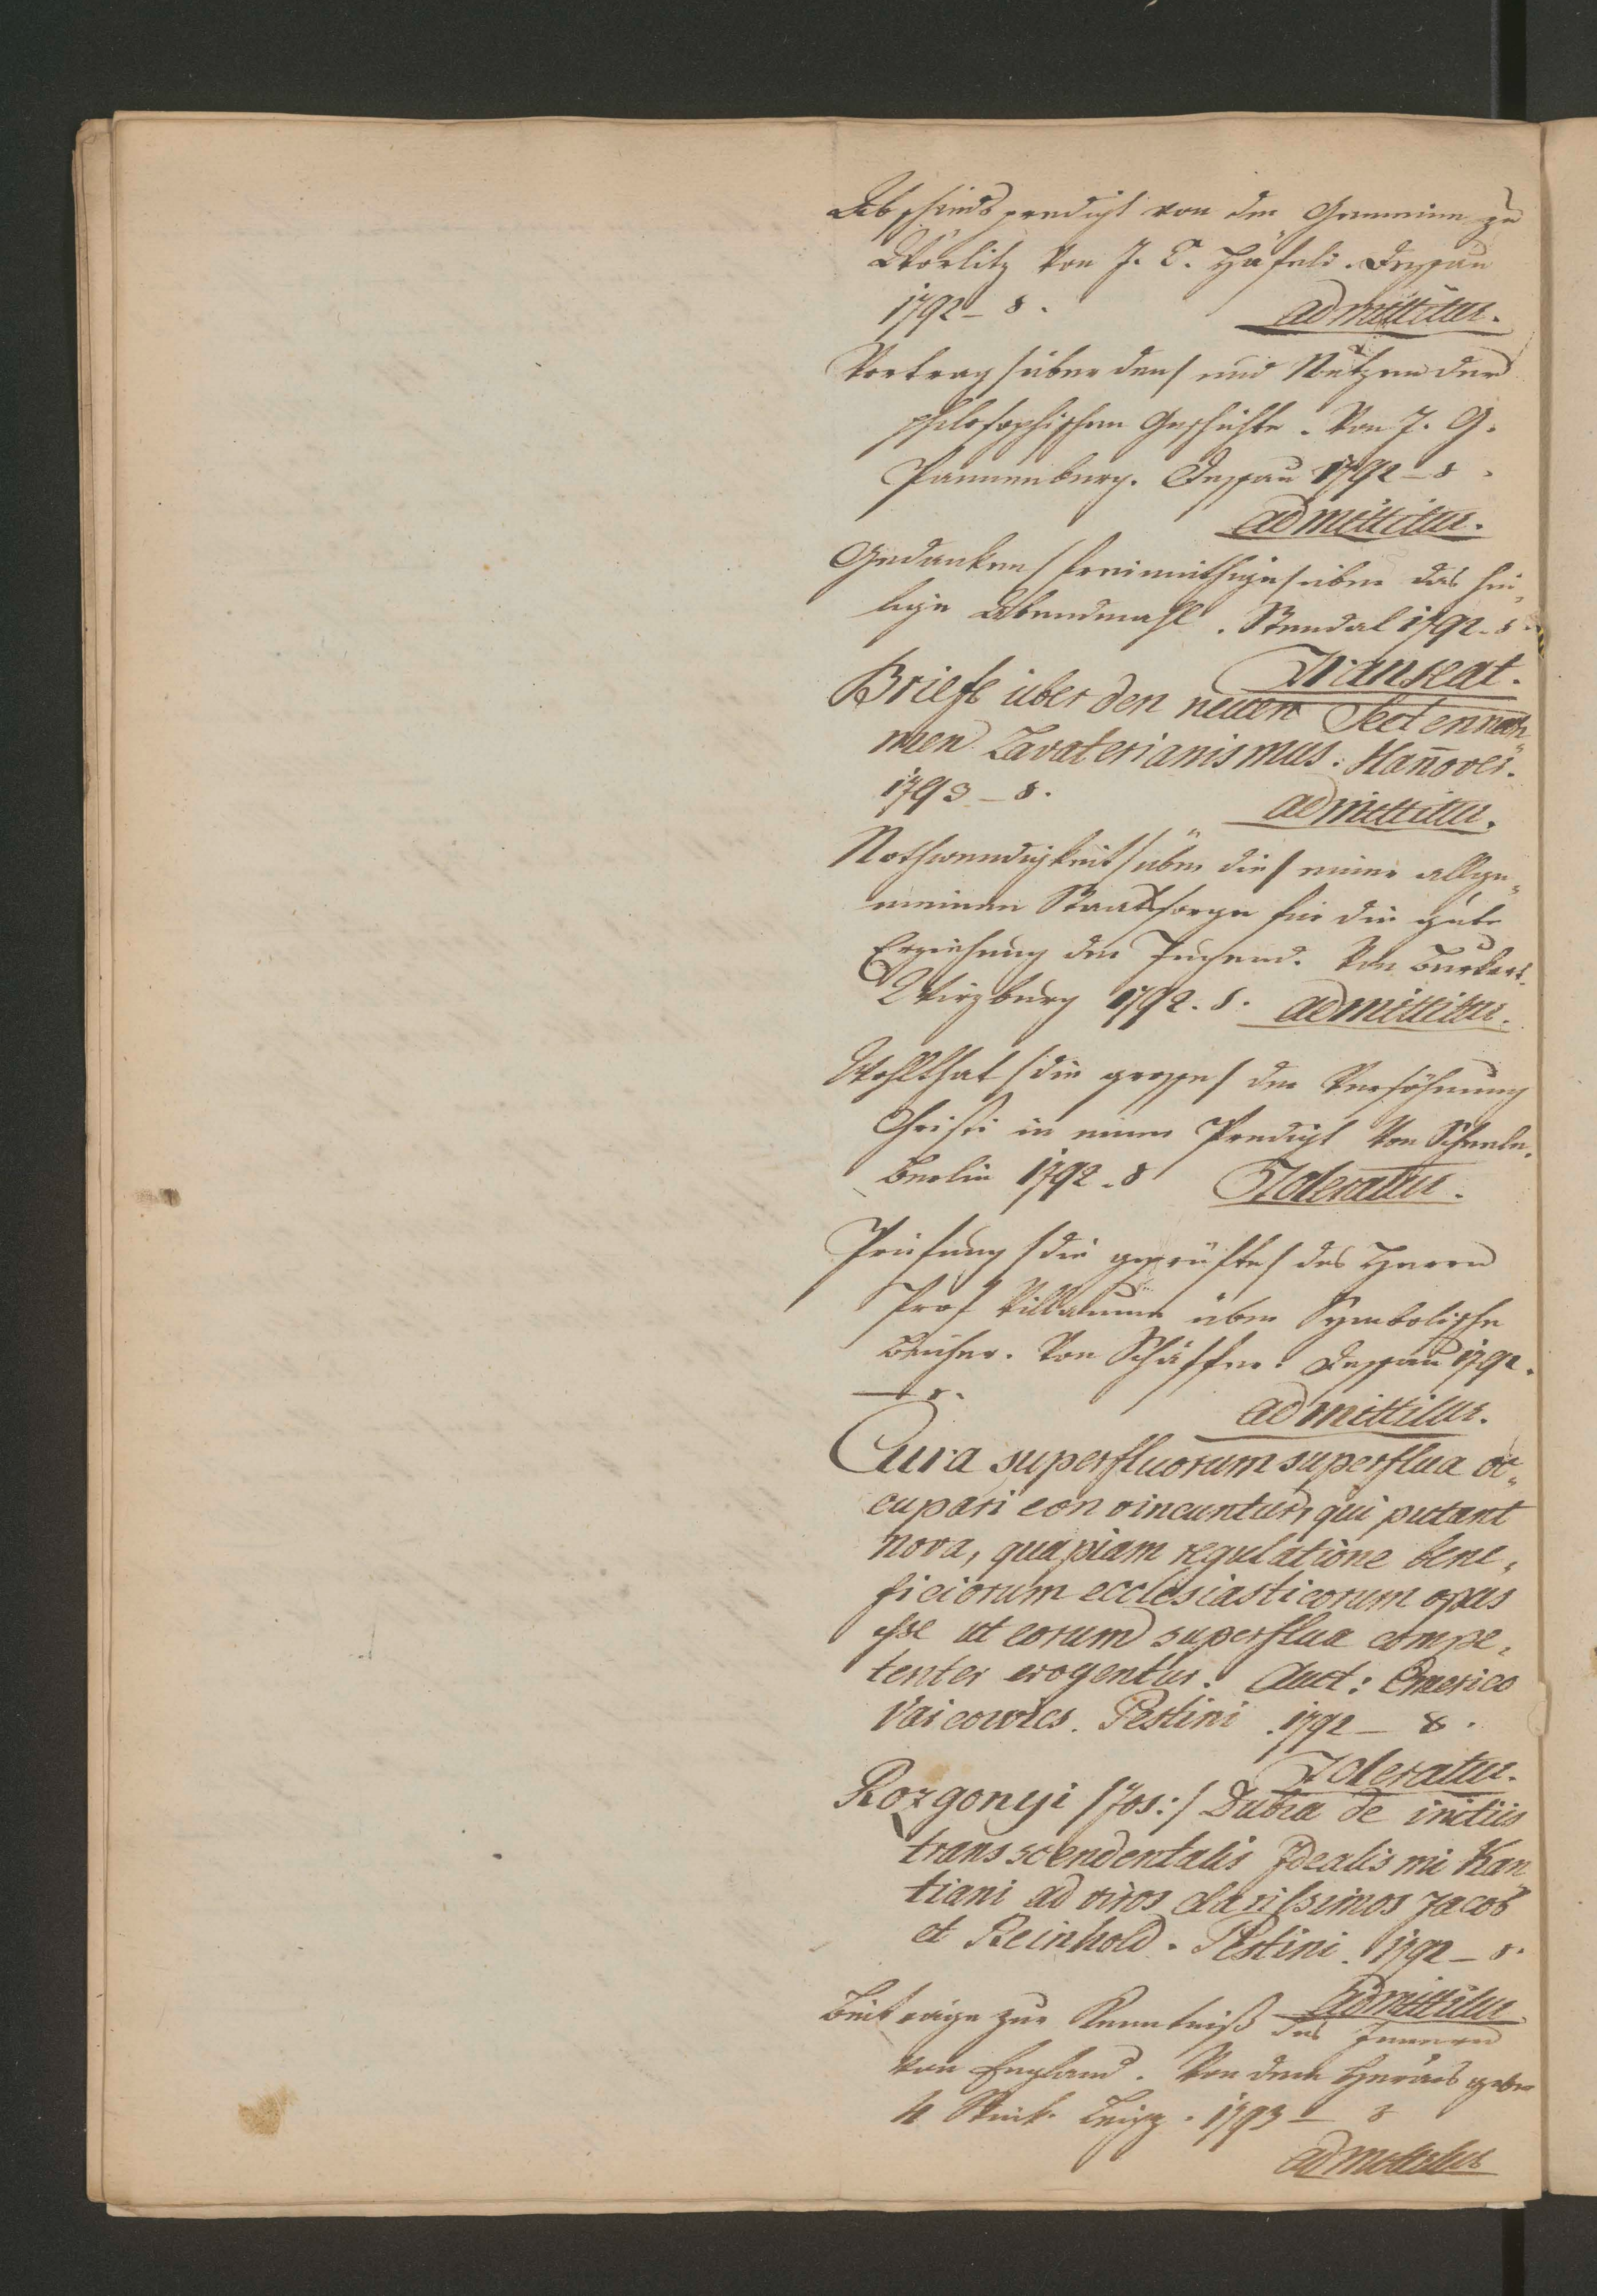 Abschiedspredigt von der Gemeinne zu
Wörlitz von J. C. Häfeli. Dessau
1792 – 8.
admittitur.
Vortrag /über den/ und Nutzen der
philosophischen Geschichte. Von J. G.
Pannenberg. Dessau 1792 – 8.
admittitur.
Gedanken /freimüthige/ über das hei„
lige Abendmahl. Stendal 1792. 8.
Transeat.
Briefe über den neuen Sectennah„
men Lavaterianismus. Hañover.
1793 – 8.
admittitur.
Nothwendigkeit /über die/ einer allge„
meinen Staatssorge für die gute
Erziehung der Jugend. Von Burkart.
Wirzburg 1792. 8. admittitur.
Wohlthat /die grosse/ der Versöhnung
Christi in einer Predigt von Scheele.
Berlin 1792. 8 Toleratur.
Prüfung /die geprüfte/ des Herrn
Prof Villaume über Symbolische
Bücher. Von Schäffer. Dessau 1792.
– 8.
admittitur.
Cura superfluorum superflua oc„
cupari convincuntur, qui putant
nova, quapiam regulatione bene„
ficiorum ecclesiasticorum opus
esse ut eorum superflua compe„
tenter erogentur. Auct: Emerico
Vaicowics. Pestini. 1792 – 8.
Toleratur.
Rozgonyi /Jos:/ Dubia de initiis
transscendentalis Idealismi Kan
tiani ad viros clarissimos Jacob
et Reinhold. Pestini. 1792 – 8.
admittitur
Beiträge zur Kenntniß des Innern
von England. Von dem Herausgeber
4 Stück. Leipz. 1793 – 8
admittitur